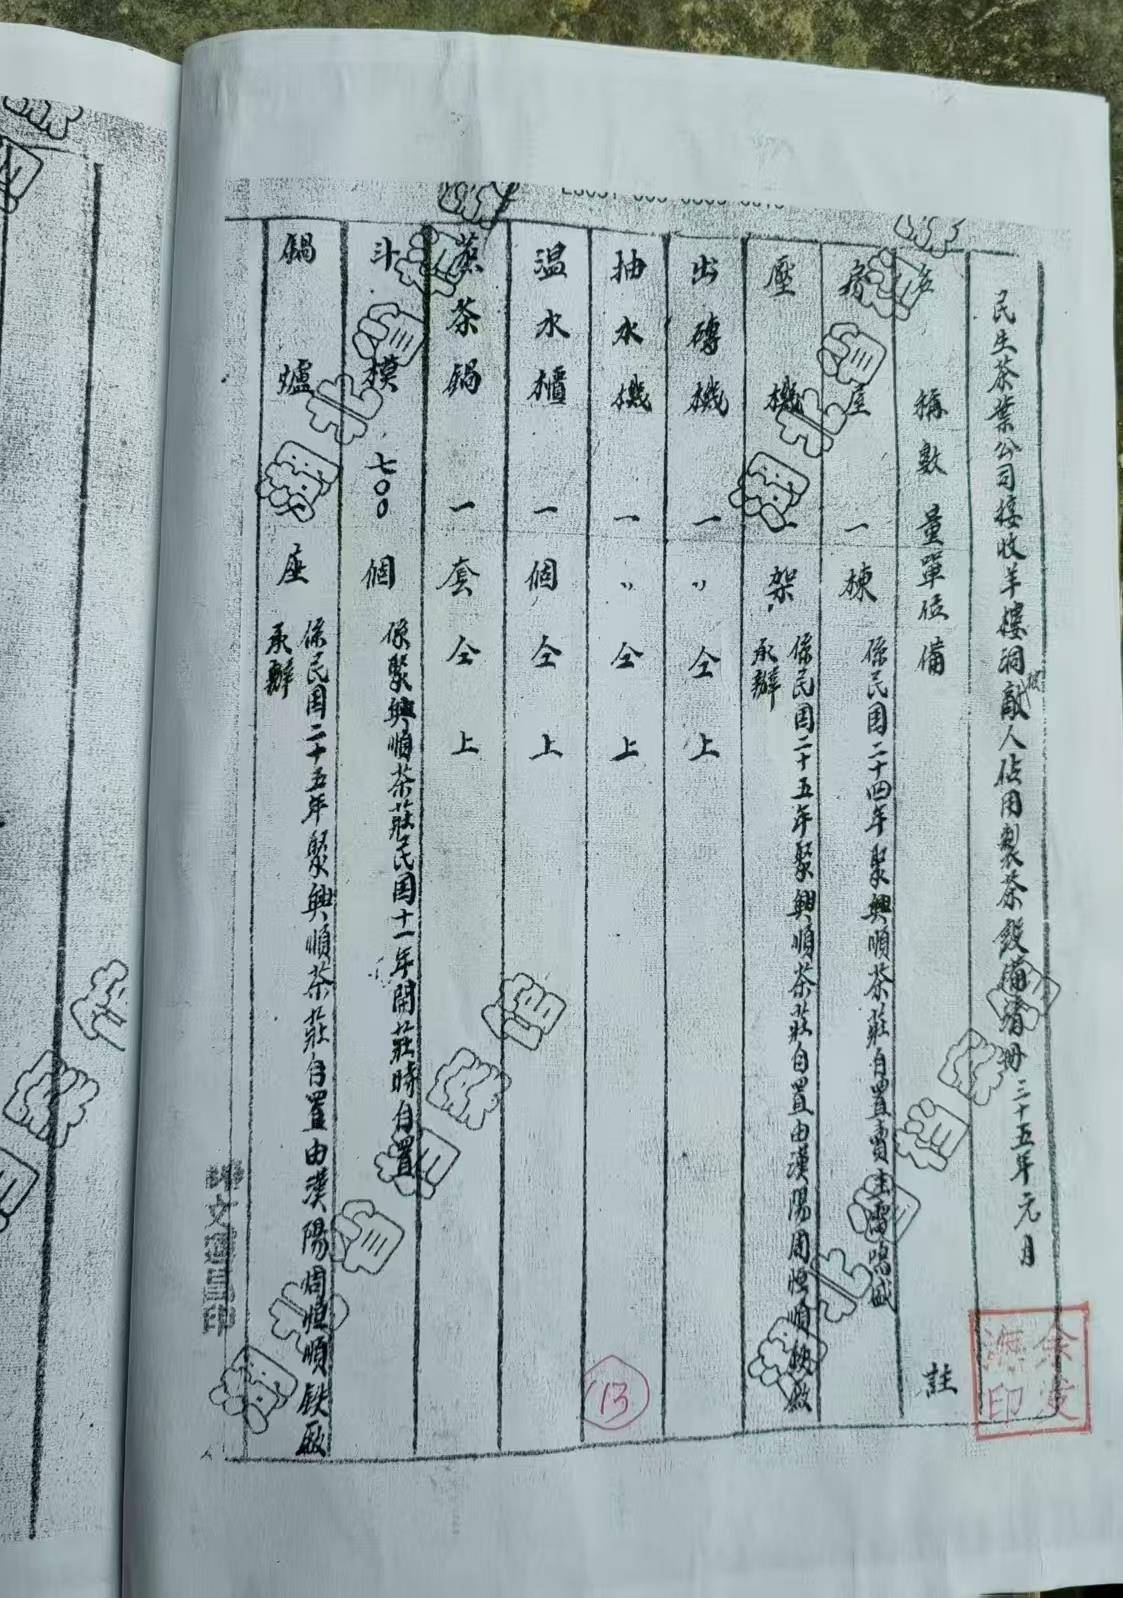 民生茶葉公司接收羊樓洞被敵人佔用製茶設備清册 三十五年元月
名稱數量單位備註
房屋一棟係民国二十四年聚興順茶莊自置賣主雷鳴盛
壓機一架係民国二十五年聚興順茶莊自置由漢陽周恒順鉄廠
承辦
出磚機一〃仝上
抽水機一〃仝上
温水櫃一個仝上
蒸茶鍋一套仝上
斗模七〇〇個係聚興順茶莊民国十一年開莊時自置
鍋爐一座係民国二十五年聚興順茶莊自置由漢陽周恒順鉄廠
承辦
13
湖北省档案馆
湖北省档案馆